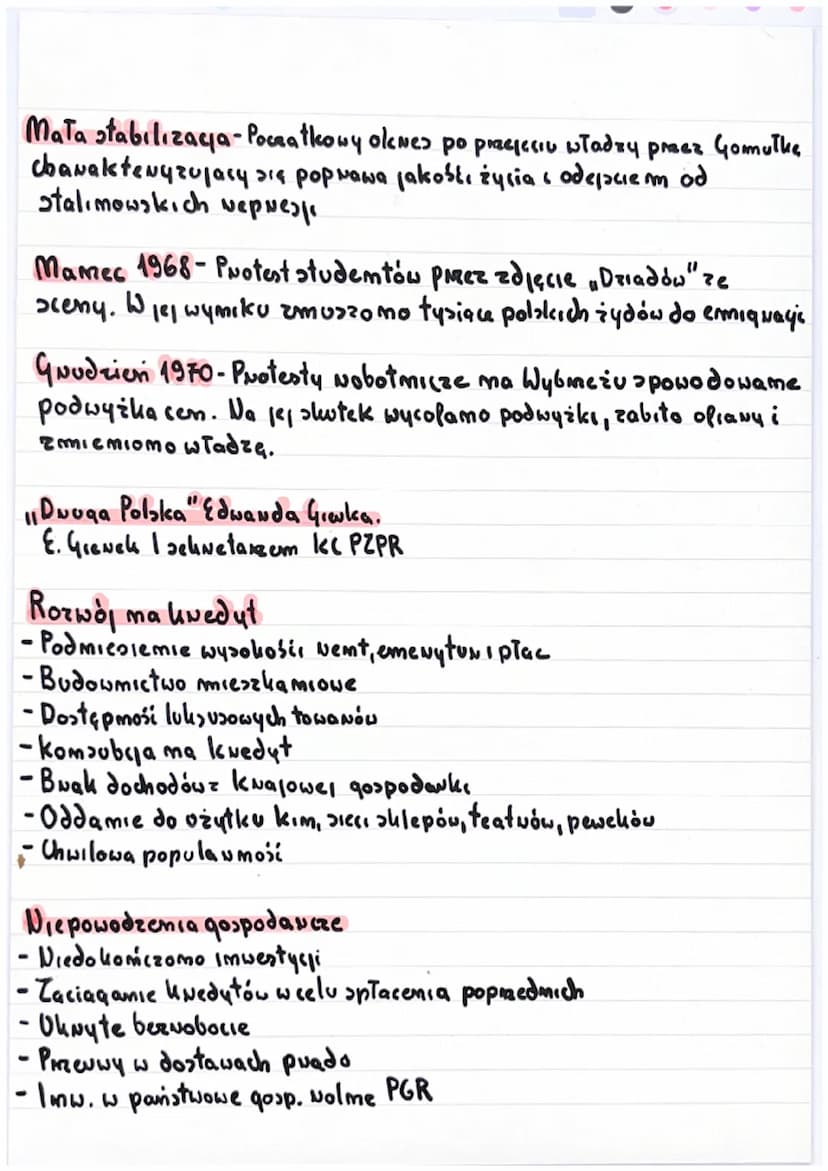 Mała stabilizacja - Początkowy okres po przejęciu władzy przez Gomułkę
charakteryzujący się poprawą jakości życia i odejściem od
stalinowskich represji
Marzec 1968 - Protest studentów przez zdjęcie „Dziadów" ze
sceny. W jej wyniku zmuszono tysiące polskich żydów do emigracji
Grudzień 1970 - Protesty robotnicze na Wybrzeżu spowodowane
podwyżką cen. Na jej skutek wycofano podwyżki, zabito ofiary i
zmieniono władzę.
„Druga Polska" Edwarda Gierka.
E. Gierek I sekretarzem KC PZPR
Rozwój na kredyt
- Podniesienie wysokości rent, emerytur i płac
- Budownictwo mieszkaniowe
- Dostępność luksusowych towarów
- Konsubcja na kredyt
- Brak dochodów z krajowej gospodarki
- Oddanie do użytku kin, sieci sklepów, teatrów, pewexów
- Chwilowa popularność
Niepowodzenia gospodarcze
- Niedokończono inwestycji
- Zaciąganie kredytów w celu spłacenia poprzednich
- Ukryte bezrobocie
- Przerwy w dostawach prądo
- Inw. w państwowe gosp. rolne PGR